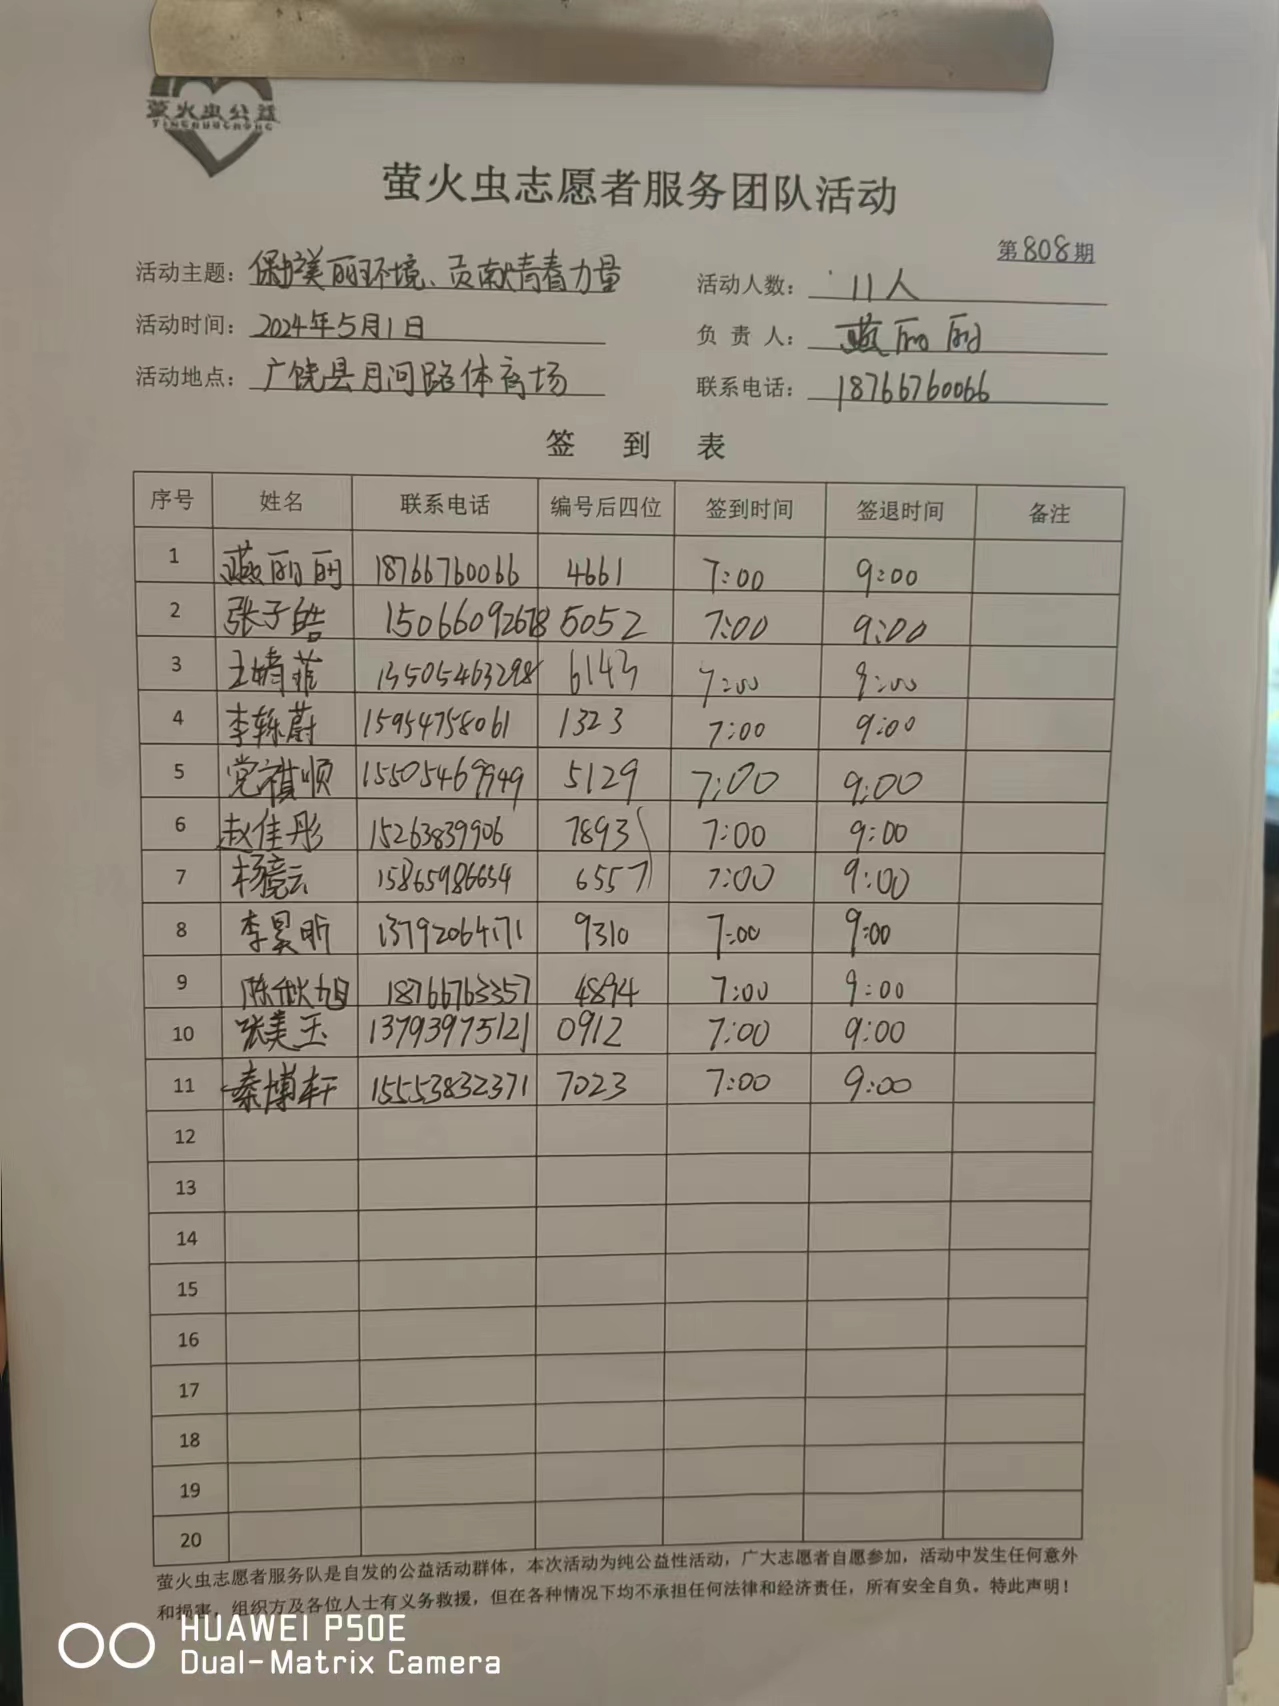 萤火虫公益
YINGHUOCHONG
萤火虫志愿者服务团队活动
第808期
活动主题：保护美丽环境、贡献青春力量 活动人数：11人
活动时间：2024年5月1日 负责人：燕丽丽
活动地点：广饶县月河路体育场 联系电话：18766760066
签到表
序号 姓名 联系电话 编号后四位 签到时间 签退时间 备注
1 燕丽丽 18766760066 4661 7:00 9:00
2 张子皓 15066092678 5052 7:00 9:00
3 王婧菲 13505463298 6143 7:00 9:00
4 李轹蔚 15954758061 1323 7:00 9:00
5 党祺顺 15505469949 5129 7:00 9:00
6 赵佳彤 15263839906 7893 7:00 9:00
7 15865986654 6557 7:00 9:00
8 李昊昕 13792064171 9310 7:00 9:00
9 18766763357 4894 7:00 9:00
10 张美玉 13793975121 0912 7:00 9:00
11 秦博轩 15553832371 7023 7:00 9:00
12
13
14
15
16
17
18
19
20
萤火虫志愿者服务队是自发的公益活动群体，本次活动为纯公益性活动，广大志愿者自愿参加，活动中发生任何意外
和损害，组织方及各位人士有义务救援，但在各种情况下均不承担任何法律和经济责任，所有安全自负。特此声明！
HUAWEI P50E
Dual-Matrix Camera